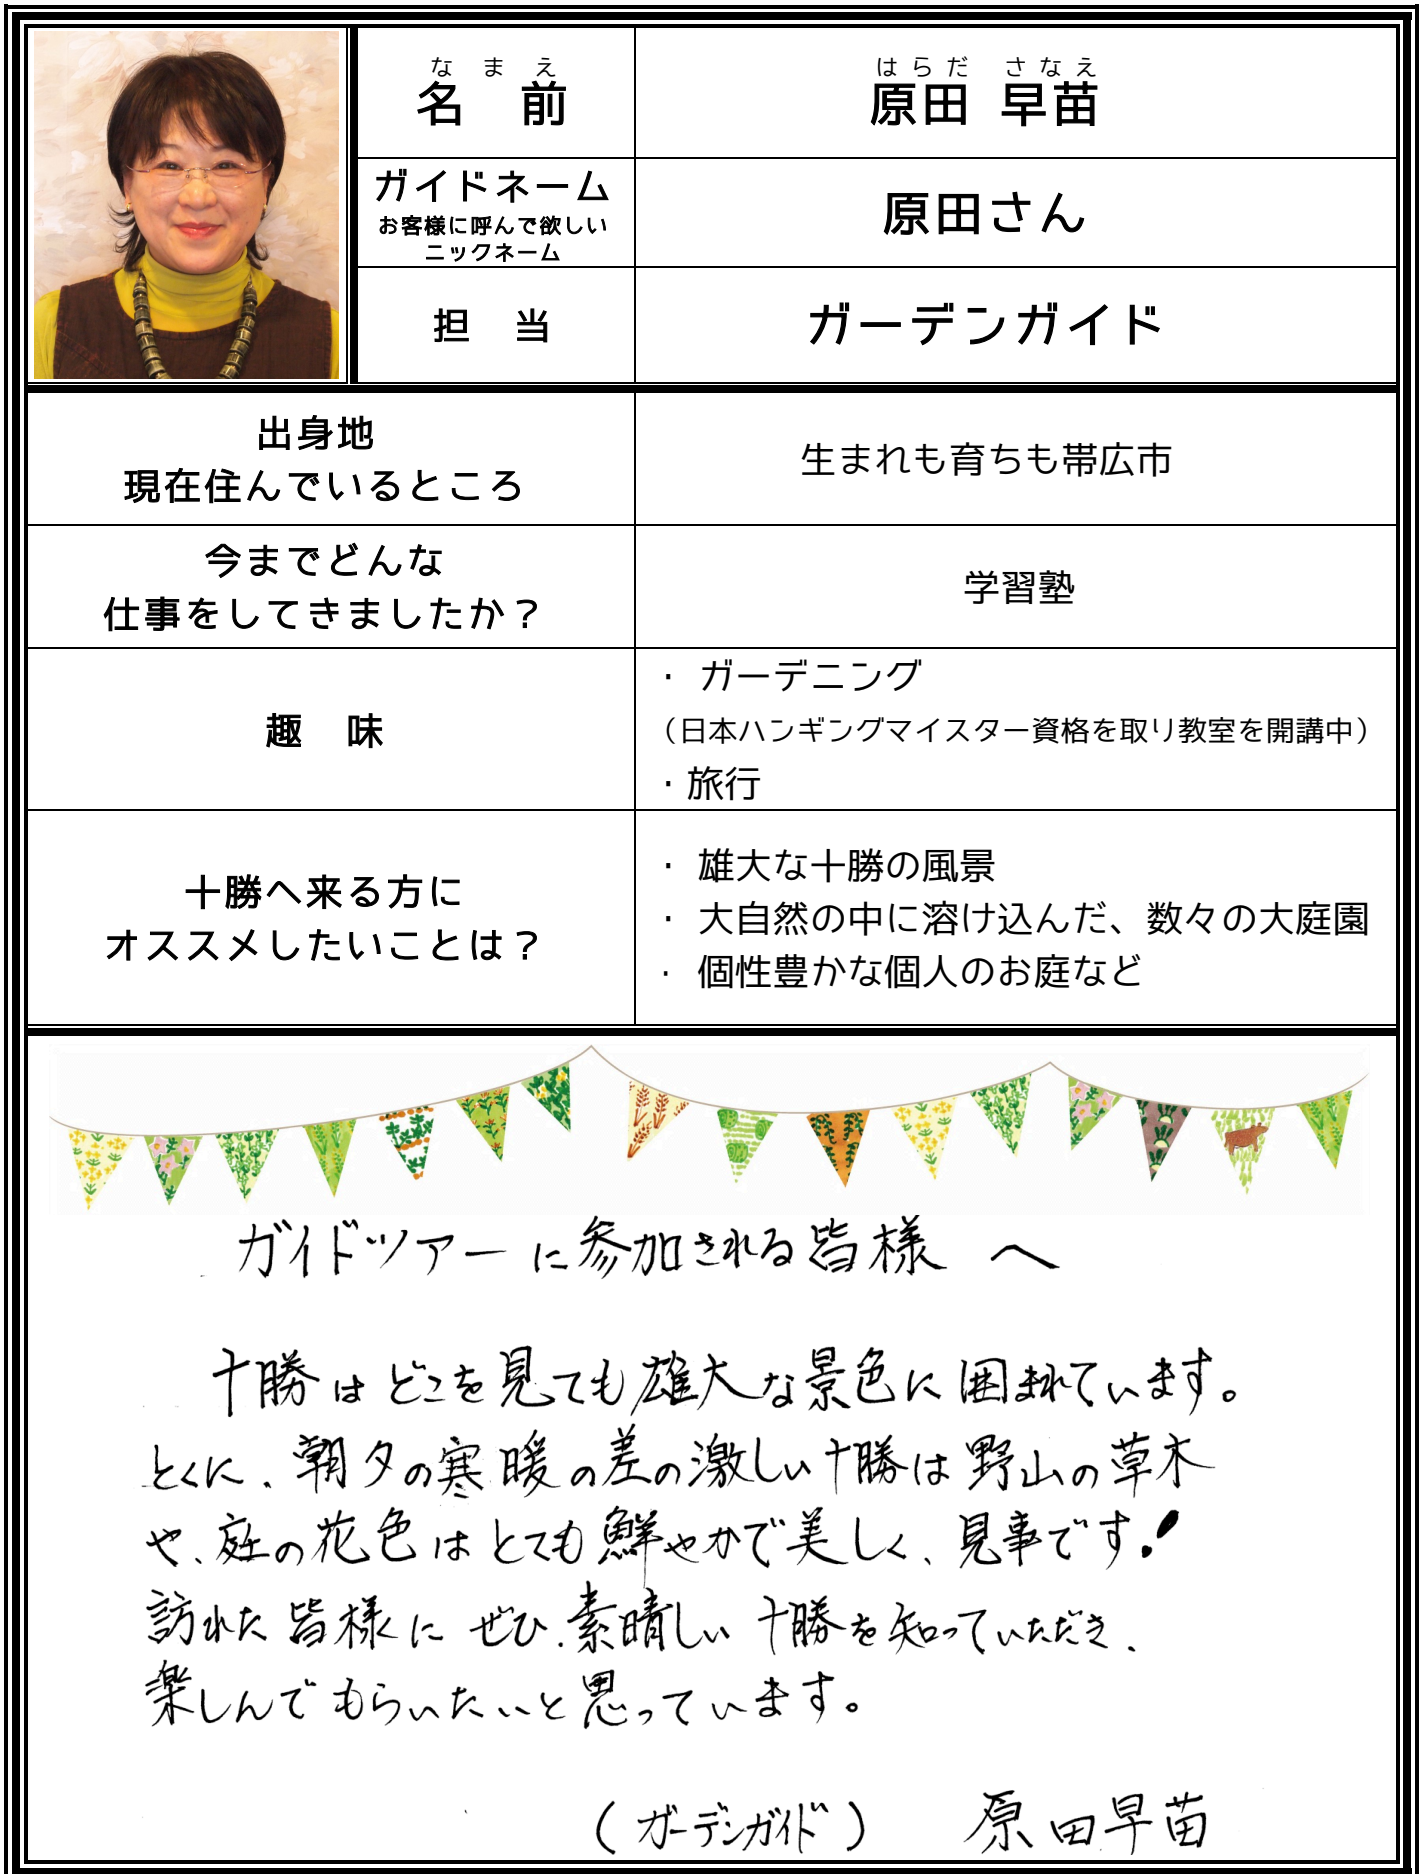 なまえ
名　前
はらだ　さなえ
原田 早苗
ガイドネーム
お客様に呼んで欲しい
ニックネーム
原田さん
担　当
ガーデンガイド
出身地
現在住んでいるところ
生まれも育ちも帯広市
今までどんな
仕事をしてきましたか？
学習塾
趣　味
・ ガーデニング
（日本ハンギングマイスター資格を取り教室を開講中）
・旅行
十勝へ来る方に
オススメしたいことは？
・ 雄大な十勝の風景
・ 大自然の中に溶け込んだ、数々の大庭園
・ 個性豊かな個人のお庭など
ガイドツアーに参加される皆様 へ
十勝はどこを見ても雄大な景色に囲まれています。
とくに、朝夕の寒暖の差の激しい十勝は野山の草木
や、庭の花色はとても鮮やかで美しく、見事です!
訪れた皆様にぜひ、素晴しい十勝を知っていただき、
楽しんでもらいたいと思っています。
(ガーデンガイド) 原田早苗